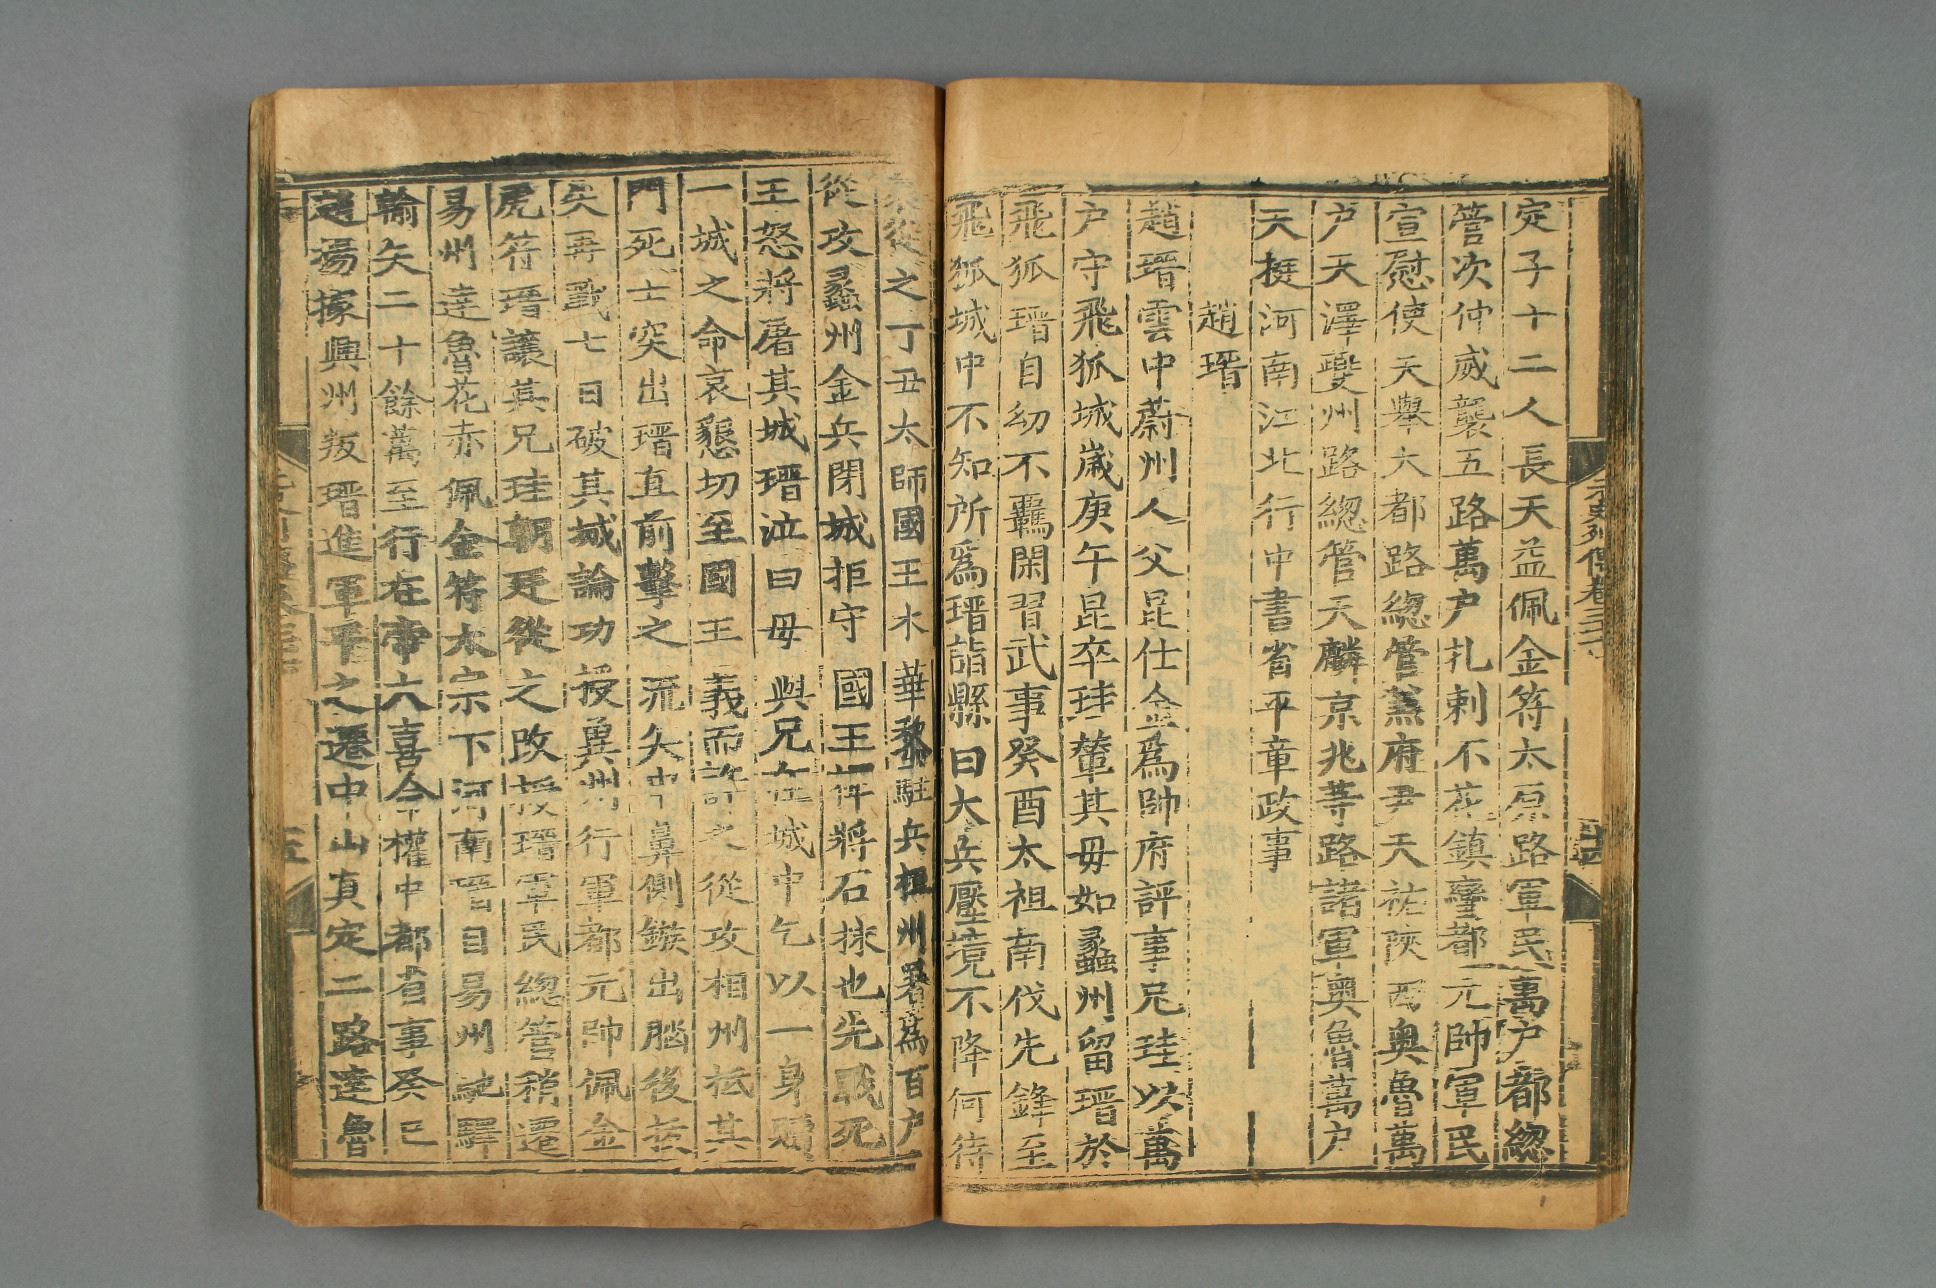 定子十二人長天益佩金符太原路軍民萬户都總
管次仲威襲五路萬户扎剌不花鎮蠻都元帥軍民
宣慰使天舉大都路總管兼府尹天祐陝西奥魯萬
户天澤夔州路總管天麟京兆等路諸軍奥魯萬户
天挺河南江北行中書省平章政事
趙瑨
趙瑨雲中蔚州人父昆仕金爲帥府評事兄珪以萬
户守飛狐城歳庚午昆卒珪輦其毋如蠡州留瑨於
飛狐瑨自幼不羈閑習武事癸酉太祖南伐先鋒至
飛狐城中不知所爲瑨詣縣曰大兵壓境不降何待
衆從之丁丑太師國王木華黎駐兵桓州署爲百户
從攻蠡州金兵閉城拒守國王裨將石抹也先戰死
王怒將屠其城瑨泣曰毋與兄在城中乞以一身贖
一城之命哀懇切至國王義而許之從攻相州抵其
門死士突出瑨直前擊之流矢中鼻側鏃出腦後拔
矢再戰七日破其城論功授兾州行軍都元帥佩金
虎符瑨讓其兄珪朝廷從之改授瑨軍民總管稍遷
易州達魯花赤佩金符太宗下河南瑨自易州馳驛
輸矢二十餘萬至行在帝大喜命權中都省事癸巳
趙揚據興州叛瑨進軍平之遷中山真定二路達魯
元史列傳卷三十
十四